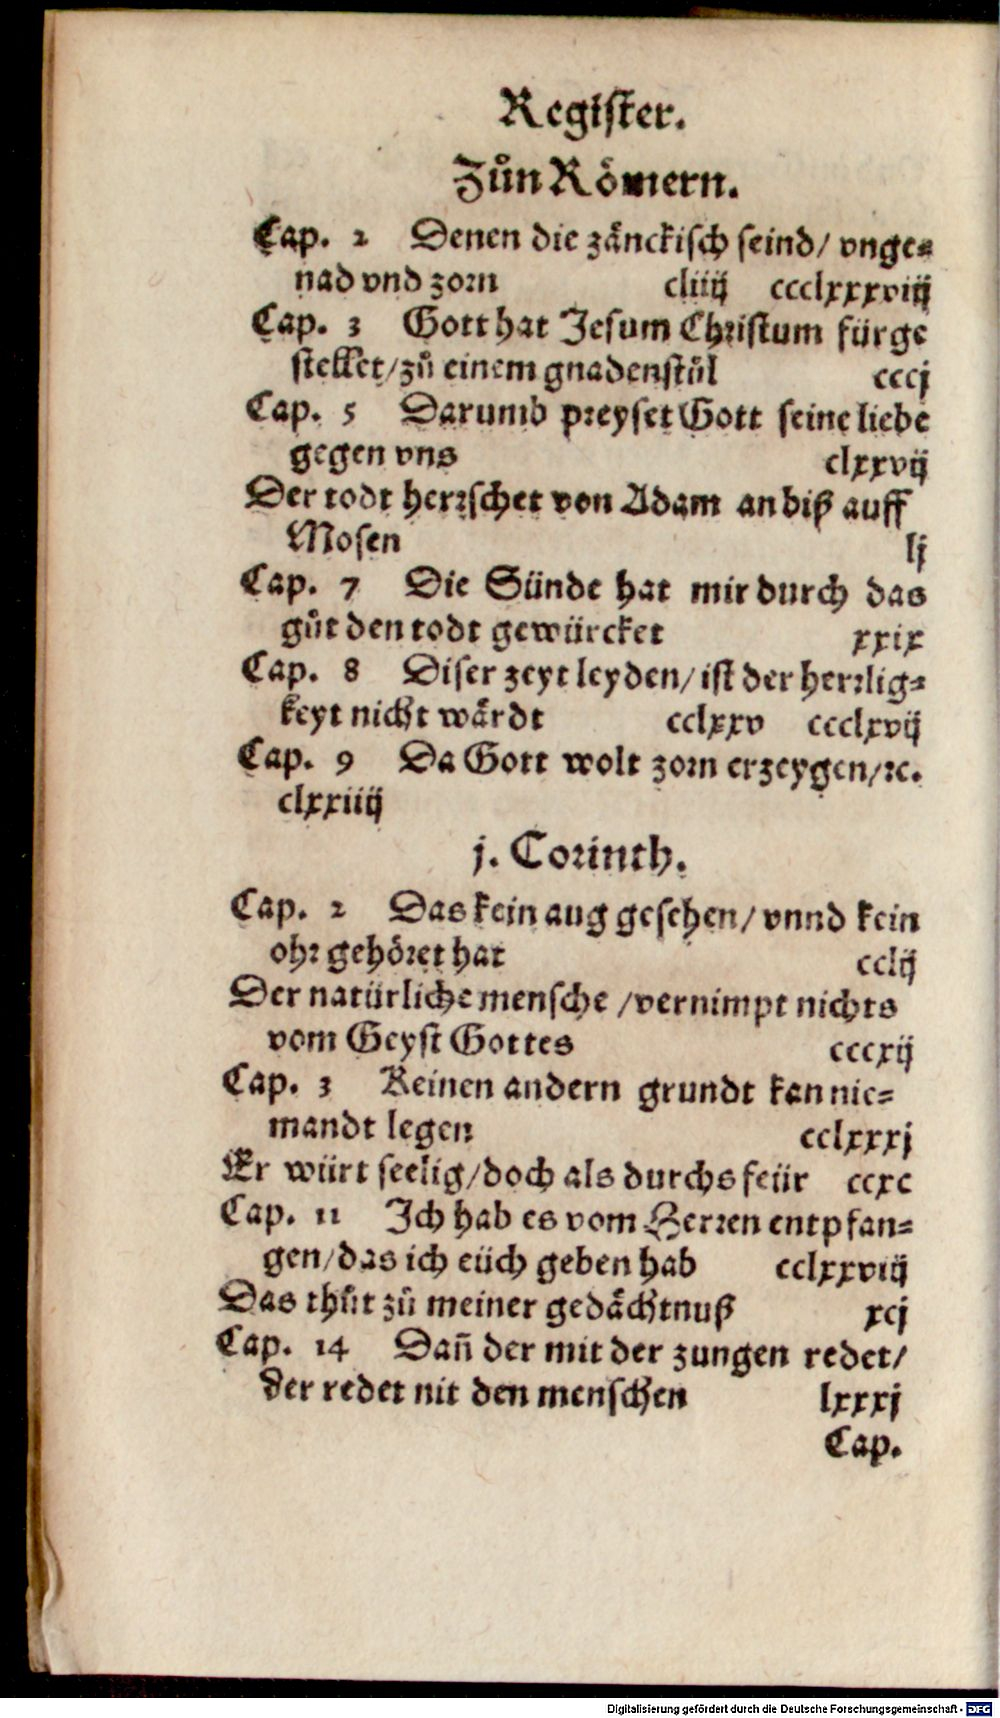 Register.
Zůn Römern.
Cap. 2 Denen die zänckisch seind/ vnge=
nad vnd zorn cliiij ccclxxxviij
Cap. 3 Gott hat Jesum Christum fürge
stellet/zů einem gnadenstůl cccj
Cap. 5 Darumb preyset Gott seine liebe
gegen vns clxxvij
Der todt herrschet von Adam an biß auff
Mosen lj
Cap. 7 Die Sünde hat mir durch das
gůt den todt gewürcket xxix
Cap. 8 Diser zeyt leyden/ ist der herrlig=
keyt nicht wärdt cclxxv ccclxvij
Cap. 9 Da Gott wolt zorn erzeygen/ꝛc.
clxxiiij
j. Corinth.
Cap. 2 Das kein aug gesehen/ vnnd kein
ohr gehöret hat cclij
Der natürliche mensche /vernimpt nichts
vom Geyst Gottes cccxij
Cap. 3 Keinen andern grundt kan nie=
mandt legen cclxxxj
Er würt seelig/doch als durchs feür ccxc
Cap. 11 Ich hab es vom Herren entpfan=
gen/das ich eüch geben hab cclxxviij
Das thůt zů meiner gedächtnuß xcj
Cap. 14 Dañ der mit der zungen redet/
der redet nit den menschen lxxxj
Cap.
Digitalisierung gefördert durch die Deutsche Forschungsgemeinschaft - DFG